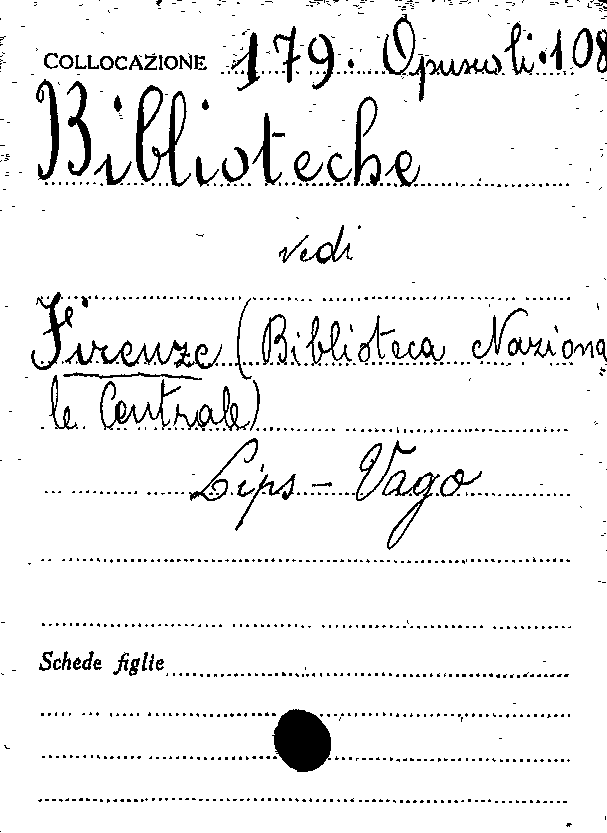 COLLOCAZIONE 179. Opuscoli.108
Biblioteche
vedi
Firenze (Biblioteca Naziona
le Centrale)
Lips - Vago
Schede figlie